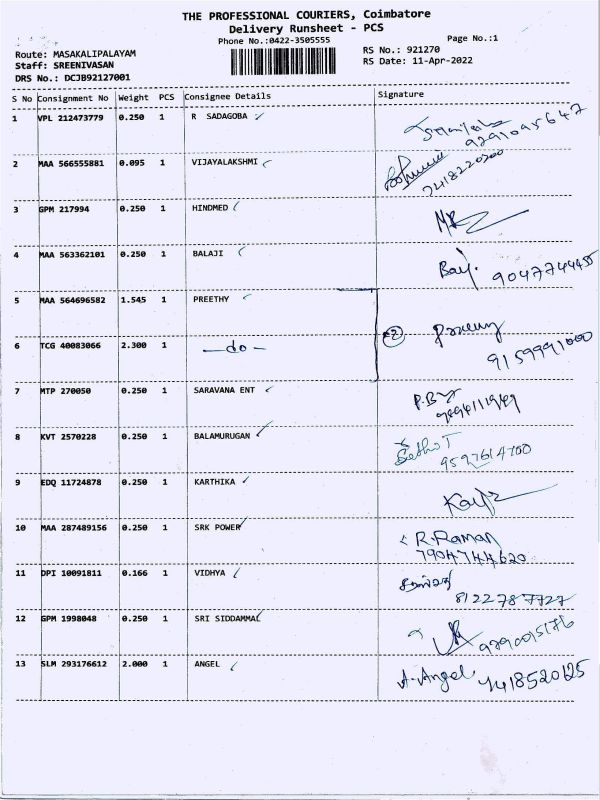 THE PROFESSIONAL COURIERS, Coimbatore
Delivery Runsheet - PCS
Phone No.:0422-3505555
Page No.:1
Route: MASAKALIPALAYAM
RS No.: 921270
Staff: SREENIVASAN
RS Date: 11-Apr-2022
DRS No.: DCJB92127001
S No Consignment No Weight PCS Consignee Details Signature
1 VPL 212473779 0.250 1 R SADAGOBA
9291095647
2 MAA 566555881 0.095 1 VIJAYALAKSHMI
7418220200
3 GPM 217994 0.250 1 HINDMED
4 MAA 563362101 0.250 1 BALAJI
9047744455
5 MAA 564696582 1.545 1 PREETHY
6 TCG 40083066 2.300 1 —do—
9159991000
7 MTP 270050 0.250 1 SARAVANA ENT
8 KVT 2570228 0.250 1 BALAMURUGAN
9597614700
9 EDQ 11724878 0.250 1 KARTHIKA
10 MAA 287489156 0.250 1 SRK POWER R. Raman
7904744620
11 DPI 10091811 0.166 1 VIDHYA
8122787727
12 GPM 1998048 0.250 1 SRI SIDDAMMAL
13 SLM 293176612 2.000 1 ANGEL A. Angel 7418520125